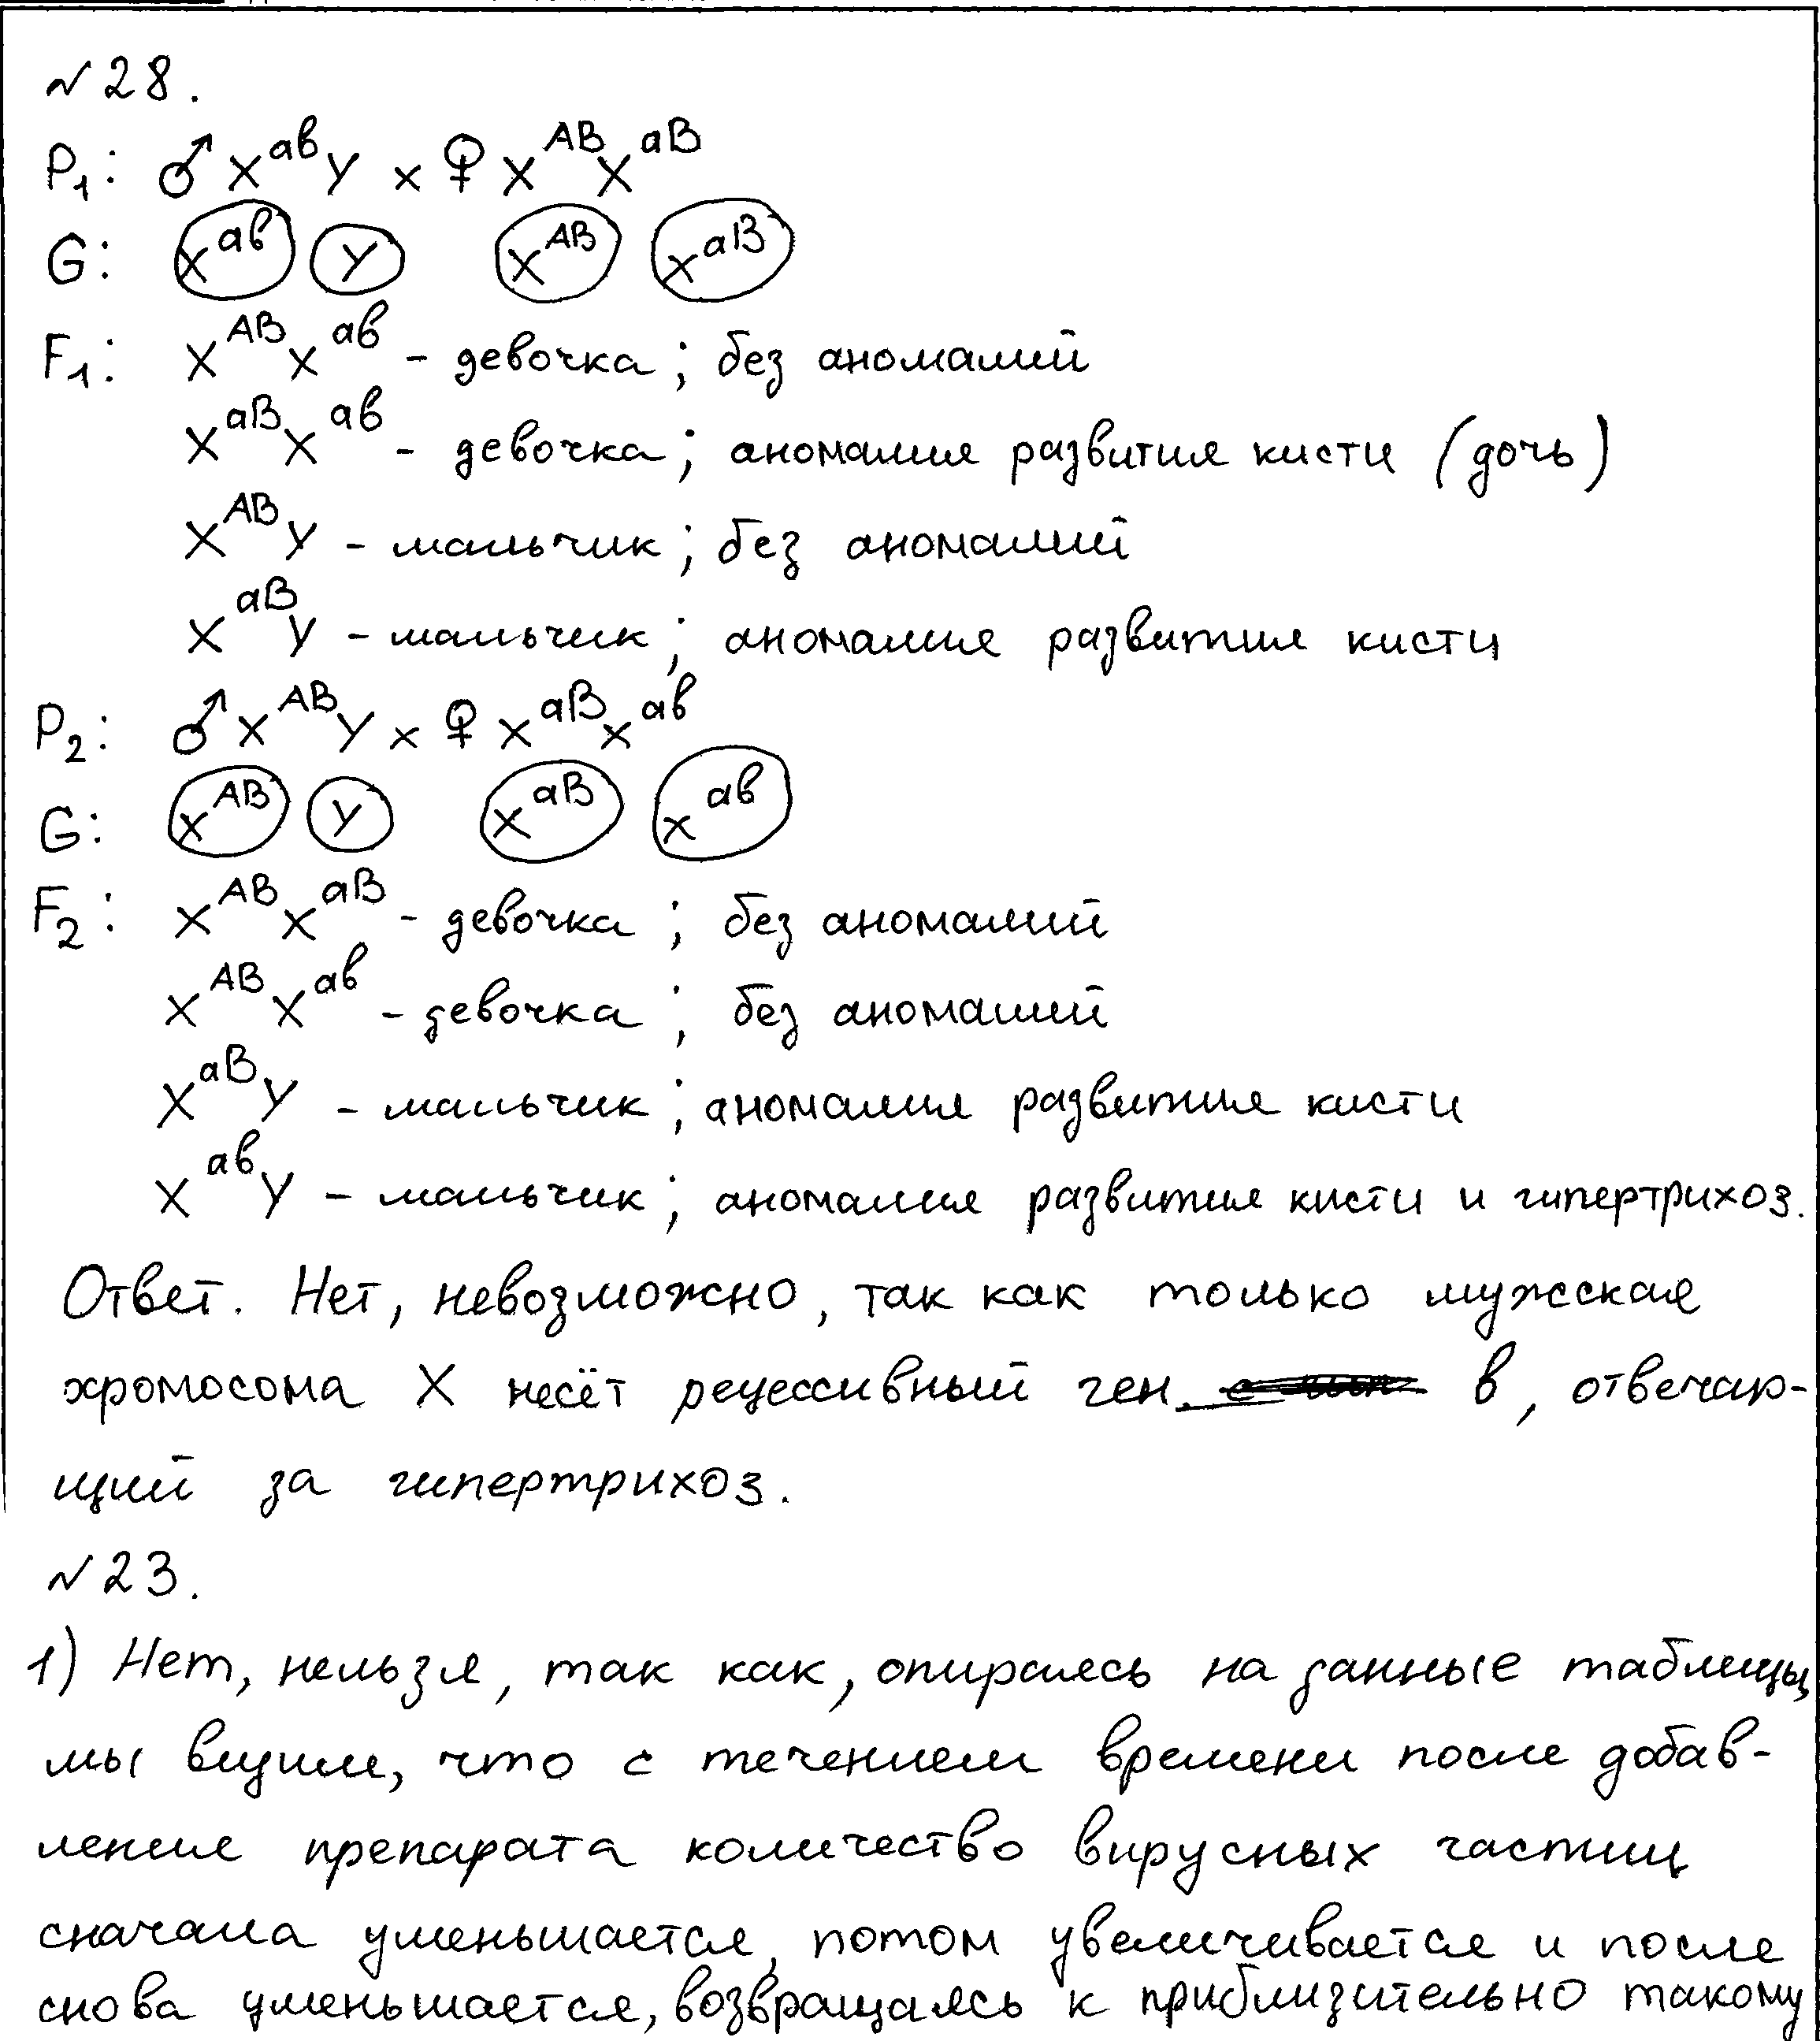 №28.
P₁: ♂XᵃᵇY × ♀Xᴬᴮ Xᵃᴮ
G: Xᵃᵇ Y Xᴬᴮ Xᵃᴮ
F₁: XᴬᴮXᵃᵇ - девочка; без аномалий
XᵃᴮXᵃᵇ - девочка; аномалия развития кисти (дочь)
XᴬᴮY - мальчик; без аномалий
XᵃᴮY - мальчик; аномалия развития кисти
P₂: ♂XᴬᴮY × ♀XᵃᴮXᵃᵇ
G: Xᴬᴮ Y Xᵃᴮ Xᵃᵇ
F₂: XᴬᴮXᵃᴮ - девочка; без аномалий
XᴬᴮXᵃᵇ - девочка; без аномалий
XᵃᴮY - мальчик; аномалия развития кисти
XᵃᵇY - мальчик; аномалия развития кисти и гипертрихоз.
Ответ. Нет, невозможно, так как только мужская
хромосома X несёт рецессивный ген в, отвечаю-
щий за гипертрихоз.
№23.
1) Нет, нельзя, так как, опираясь на данные таблицы,
мы видим, что с течением времени после добав-
ления препарата количество вирусных частиц
сначала уменьшается, потом увеличивается и после
снова уменьшается, возвращаясь к приблизительно такому